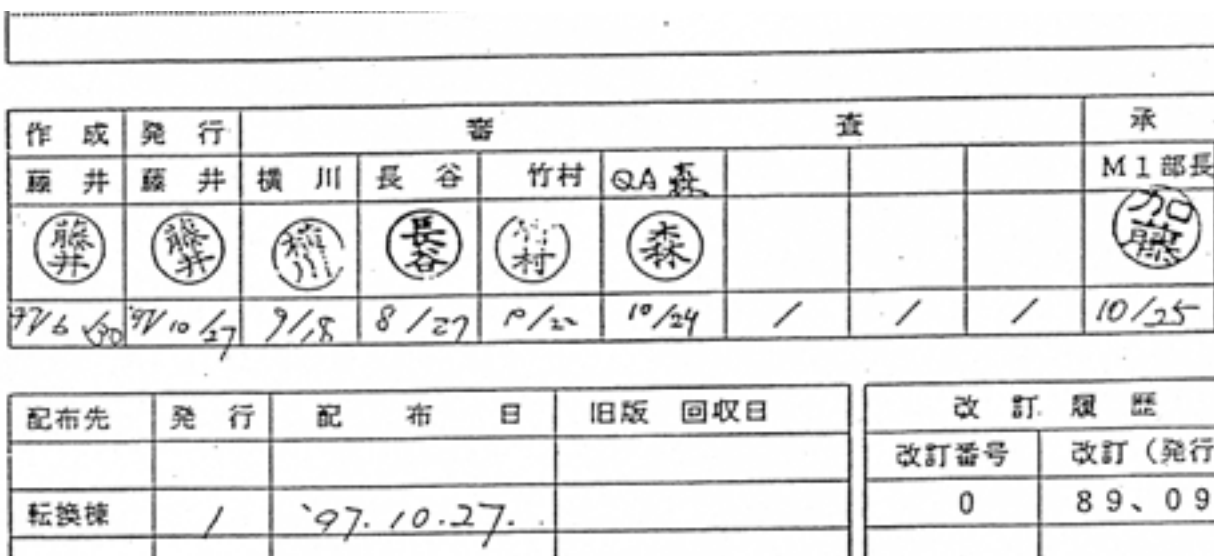 作 成 発 行 審 査 承
藤 井 藤 井 横 川 長 谷 竹村 QA 森 M1部長
藤井 藤井 横川 長谷 竹村 森 加藤
'97/6/30 '97/10/27 9/18 8/27 10/22 10/24 / / / 10/25
配布先 発 行 配 布 日 旧版 回収日 改 訂 履 歴
改訂番号 改訂(発行
0 89、09
転換棟 1 '97.10.27.